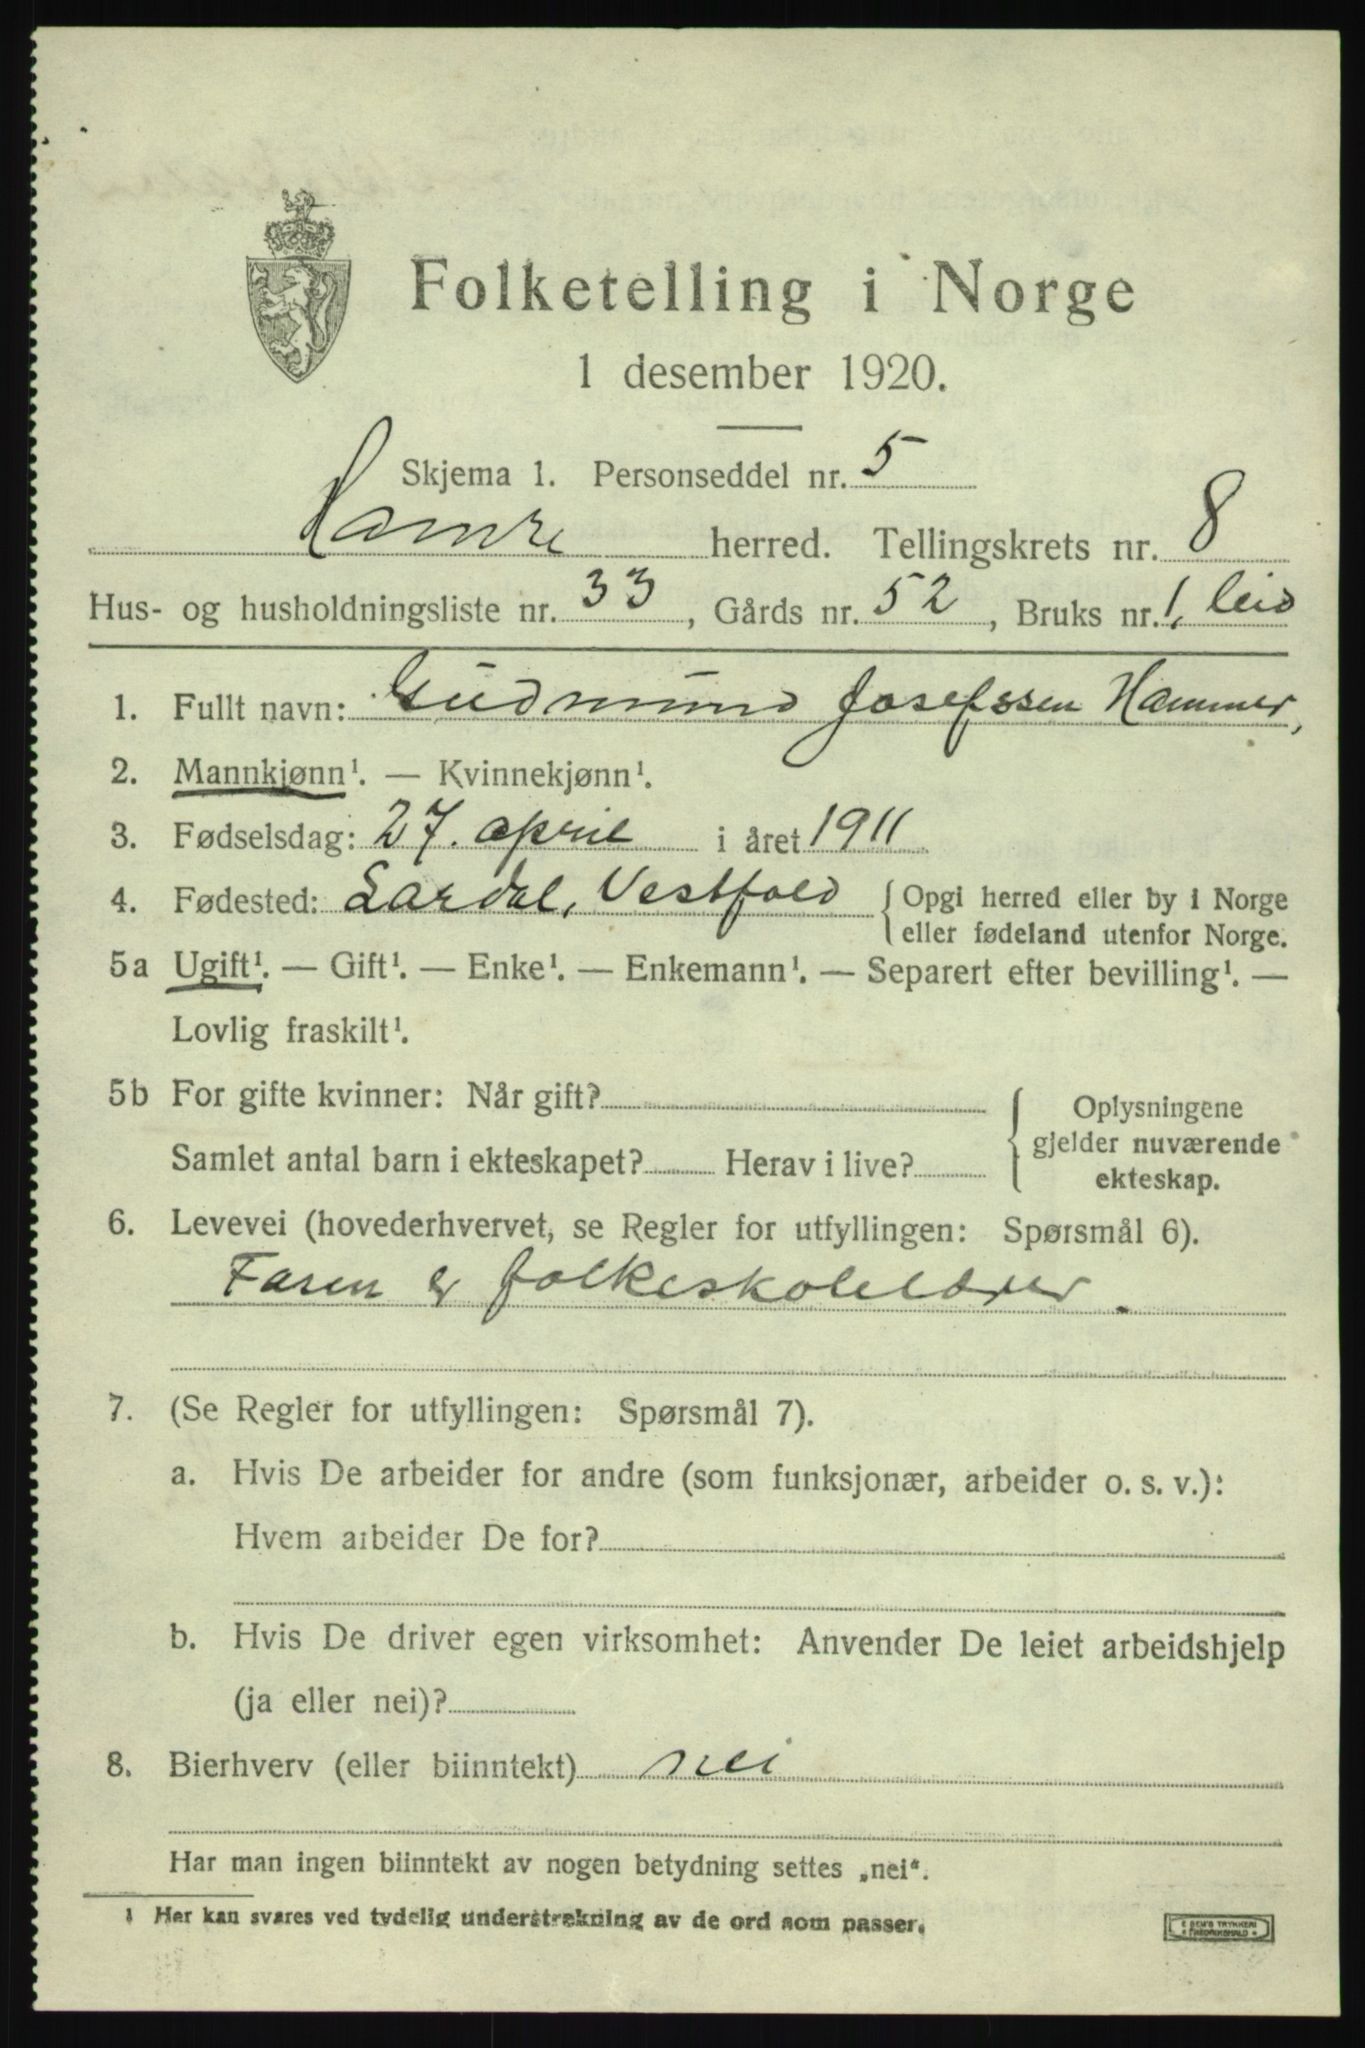 Folketelling i Norge
1 desember 1920.
Skjema 1. Personseddel nr. 5
Hamre herred. Tellingskrets nr. 8
Hus- og husholdningsliste nr. 33, Gårds nr. 52, Bruks nr. 1, leid
1. Fullt navn: Gudmund Josefssen Hammer,
2. Mannkjønn¹. — Kvinnekjønn¹.
3. Fødselsdag: 27. april i året 1911
4. Fødested: Lardal, Vestfold { Opgi herred eller by i Norge
eller fødeland utenfor Norge.
5a Ugift¹. — Gift¹. — Enke¹. — Enkemann¹. — Separert efter bevilling¹. —
Lovlig fraskilt¹.
5b For gifte kvinner: Når gift?
Samlet antal barn i ekteskapet? Herav i live?
{ Oplysningene
gjelder nuværende
ekteskap.
6. Levevei (hovederhvervet, se Regler for utfyllingen: Spørsmål 6).
Faren er folkeskolelærer.
7. (Se Regler for utfyllingen: Spørsmål 7).
a. Hvis De arbeider for andre (som funksjonær, arbeider o. s. v.):
Hvem arbeider De for?
b. Hvis De driver egen virksomhet: Anvender De leiet arbeidshjelp
(ja eller nei)?
8. Bierhverv (eller biinntekt) nei
Har man ingen biinntekt av nogen betydning settes „nei“.
1 Her kan svares ved tydelig understrekning av de ord som passer.